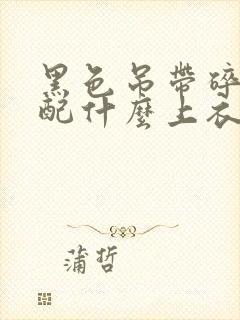 黑色吊帶碎
配什麼上衣
蒲哲